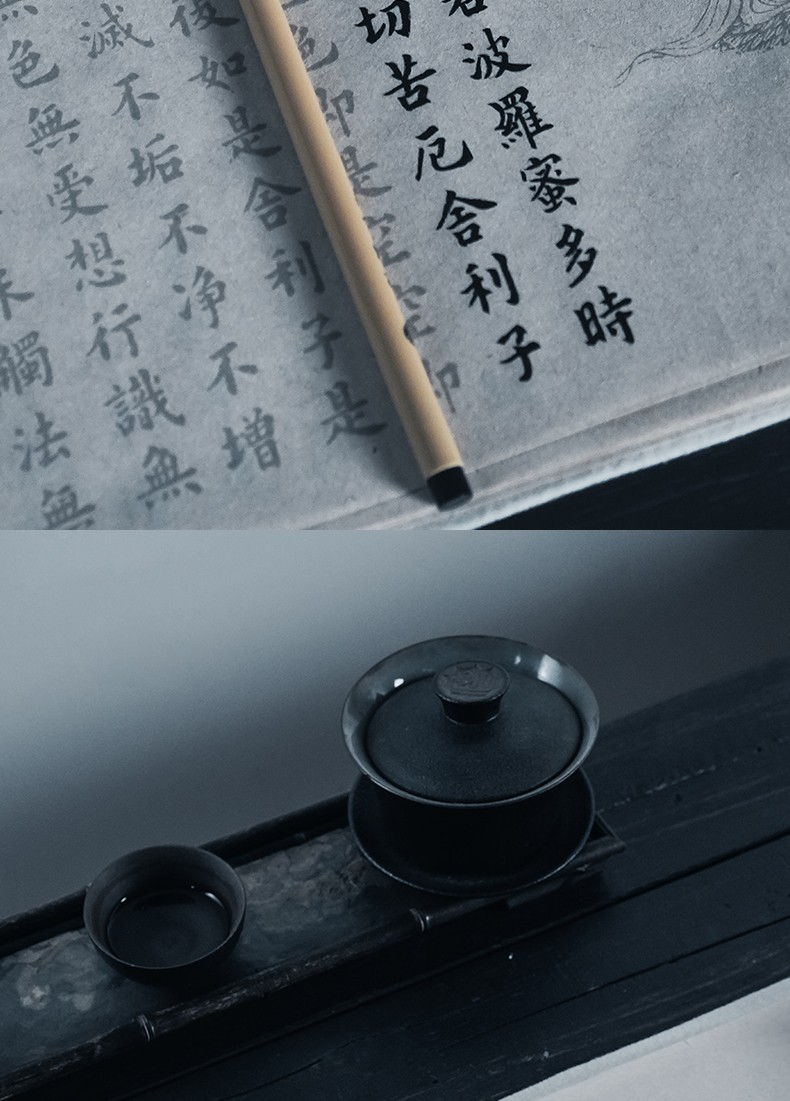 若波羅蜜多時
切苦厄舍利子
色即是空空即
復如是舍利子是
滅不垢不净不增
無色無受想行識無
觸法無